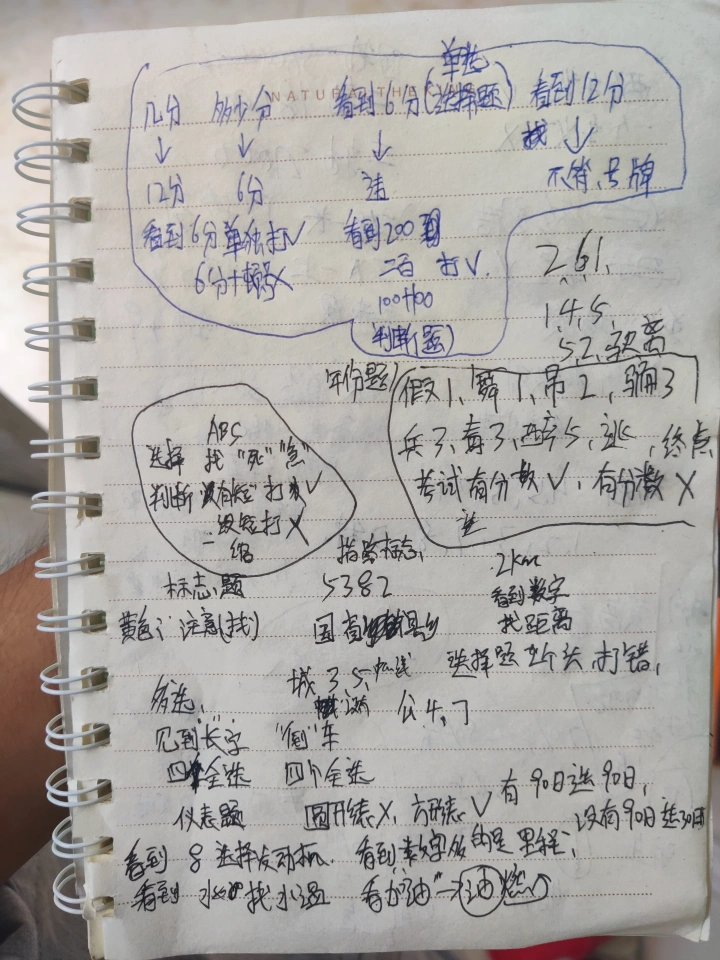 单选
几分 多少分 看到6分(选择题) 看到12分
NATURA THE
↓ ↓ ↓ 找 ↓
12分 6分 违 不符、号牌
看到6分单独打√ 看到200
二百 打√.
6分+ ×
100+100
判断(题)
261,
1,4,5,
5,2,距离
年份题)
假1,舞1,吊2,骗3
兵3,毒3,醉5,逃,终点
考试有分数√,有分数×
ABC
选择 找"死""急"
判断 打√
打×
指路标志,
标志题 5382
黄色 注意(找) 国省县乡
2km
看到数字
找距离
选择题 打错,
多选, 城3,5,
公4,7
见到"长"字 "倒"车
四个全选 四个全选
仪表题 圆形表×,方形表√
有90日选90日,
没有90日选30日
看到8选择发动机. 看到数字多的是里程,
看到水 找水温 看加油→油 燃